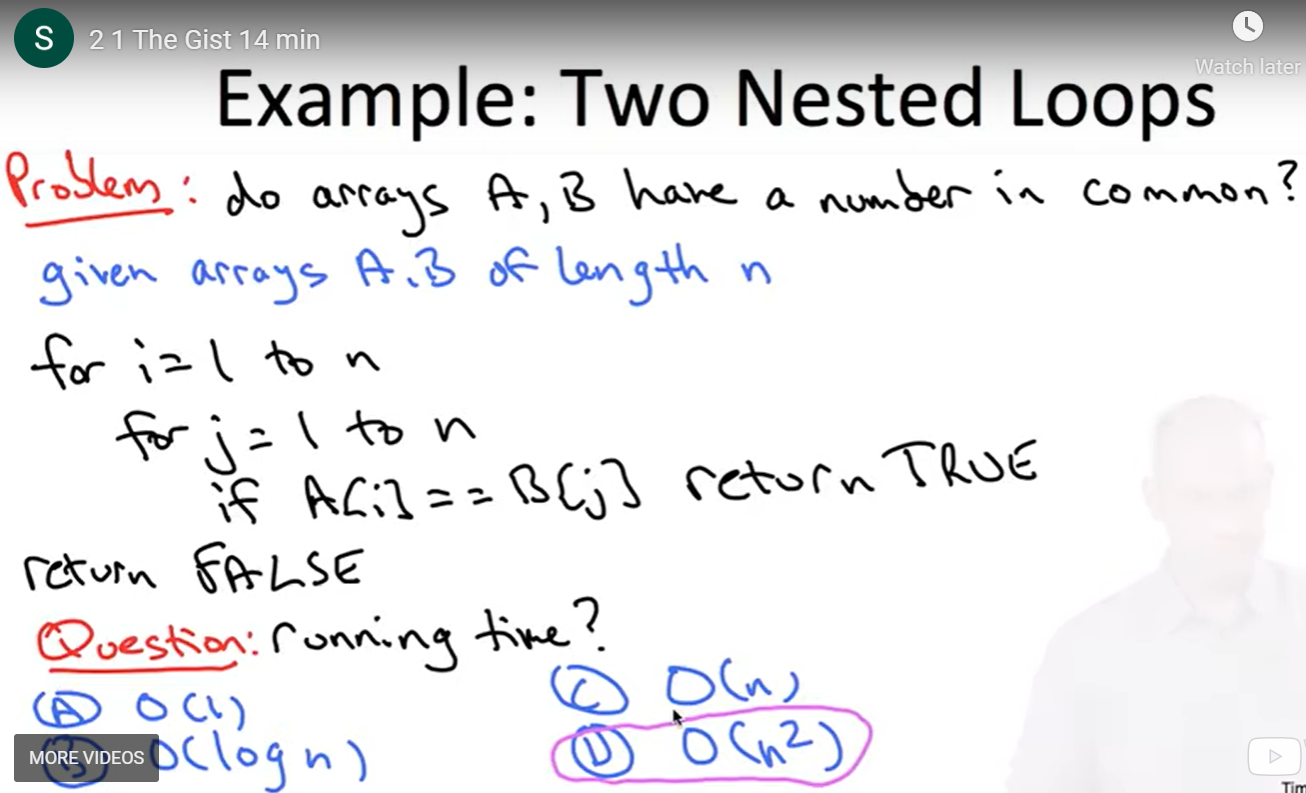 S 2 1 The Gist 14 min
Watch later
Example: Two Nested Loops
Problem: do arrays A, B have a number in common?
given arrays A, B of length n
for i=1 to n
for j=1 to n
if A[i]==B[j] return TRUE
return FALSE
Question: running time?
(A) O(1)
(C) O(n)
(B) O(log n)
(D) O(n²)
MORE VIDEOS
Tim